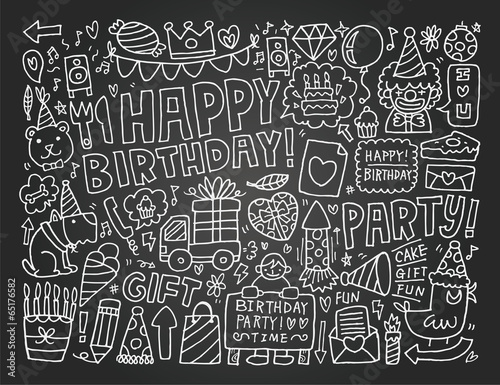 HAPPY
BIRTHDAY!
I
♡
U
HAPPY!
BIRTHDAY
PARTY!
CAKE
GIFT
FUN
#GIFT
BIRTHDAY
PARTY! ♡♡
TIME
FUN
© notkoo2008 - Fotolia.com #65176582